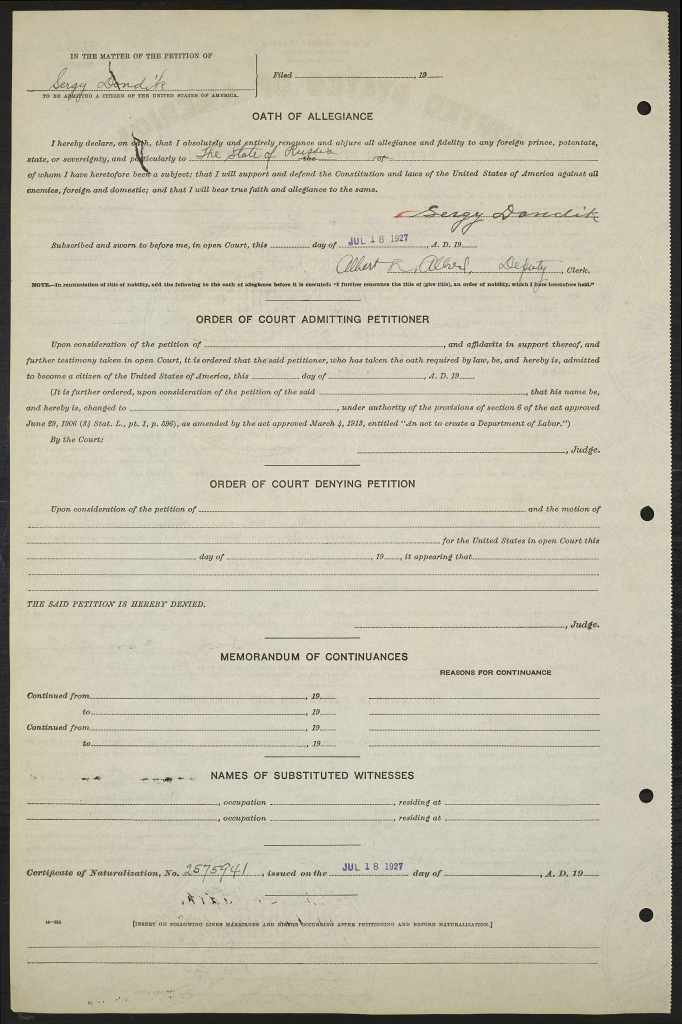 IN THE MATTER OF THE PETITION OF
Sergy Dondik
TO BE ADMITTED A CITIZEN OF THE UNITED STATES OF AMERICA.
Filed , 19
OATH OF ALLEGIANCE
I hereby declare, on oath, that I absolutely and entirely renounce and abjure all allegiance and fidelity to any foreign prince, potentate,
state, or sovereignty, and particularly to The State of Russia the or
of whom I have heretofore been a subject; that I will support and defend the Constitution and laws of the United States of America against all
enemies, foreign and domestic; and that I will bear true faith and allegiance to the same.
Sergy Dondik
Subscribed and sworn to before me, in open Court, this day of JUL 18 1927, A. D. 19
Albert R. Deputy, Clerk.
NOTE.—In renunciation of title of nobility, add the following to the oath of allegiance before it is executed: "I further renounce the title of (give title), an order of nobility, which I have heretofore held."
ORDER OF COURT ADMITTING PETITIONER
Upon consideration of the petition of , and affidavits in support thereof, and
further testimony taken in open Court, it is ordered that the said petitioner, who has taken the oath required by law, be, and hereby is, admitted
to become a citizen of the United States of America, this day of , A. D. 19
(It is further ordered, upon consideration of the petition of the said , that his name be,
and hereby is, changed to , under authority of the provisions of section 6 of the act approved
June 29, 1906 (34 Stat. L., pt. 1, p. 596), as amended by the act approved March 4, 1913, entitled "An act to create a Department of Labor.")
By the Court:
, Judge.
ORDER OF COURT DENYING PETITION
Upon consideration of the petition of and the motion of
for the United States in open Court this
day of , 19 , it appearing that
THE SAID PETITION IS HEREBY DENIED.
, Judge.
MEMORANDUM OF CONTINUANCES
REASONS FOR CONTINUANCE
Continued from , 19
to , 19
Continued from , 19
to , 19
NAMES OF SUBSTITUTED WITNESSES
, occupation , residing at
, occupation , residing at
Certificate of Naturalization, No. 2575941, issued on the JUL 18 1927 day of , A. D. 19
[INSERT ON FOLLOWING LINES MARRIAGES AND BIRTHS OCCURRING AFTER PETITIONING AND BEFORE NATURALIZATION.]